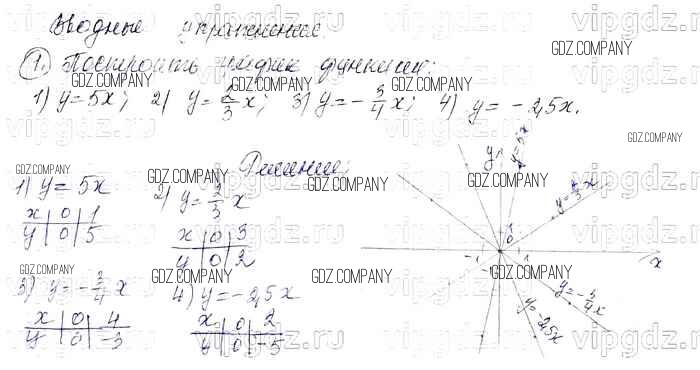 Вводные упражнения
1. Построить график функции:
1) y = 5x; 2) y = 2/3 x; 3) y = - 3/4 x; 4) y = - 2,5x.
Решение:
1) y = 5x
x | 0 | 1
y | 0 | 5
2) y = 2/3 x
x | 0 | 3
y | 0 | 2
3) y = - 3/4 x
x | 0 | 4
y | 0 | -3
4) y = - 2,5x
x | 0 | 2
y | 0 | -5
y
y = 5x
y = 2/3 x
-1 0 1
x
y = - 3/4 x
y = -2,5x
GDZ.COMPANY
vipgdz.ru